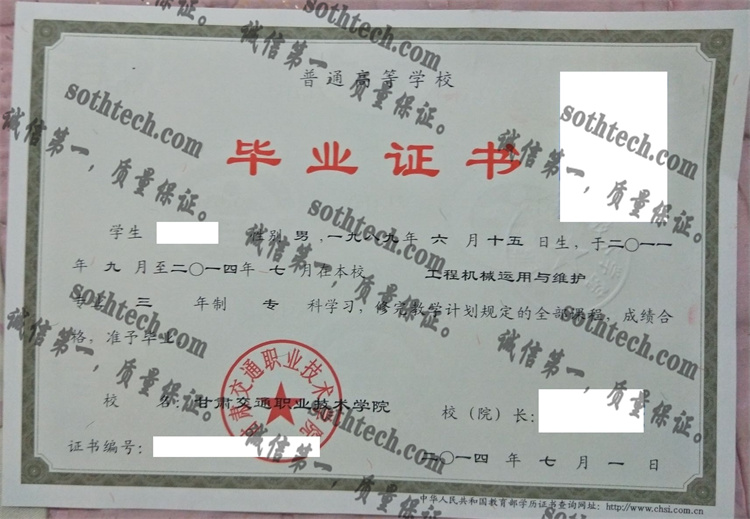 普通高等学校
毕业证书
学生 性别 男 ,一九八九年 六 月 十五 日生, 于二〇一一
年 九 月至二〇一四年 七 月在本校 工程机械运用与维护
专业 三 年制 专 科学习, 修完教学计划规定的全部课程, 成绩合
格, 准予毕业。
校 名: 甘肃交通职业技术学院 校(院)长:
甘肃交通职业技术学院
证书编号: 二〇一四 年 七 月 一 日
中华人民共和国教育部学历证书查询网址: http://www.chsi.com.cn
sothtech.com
诚信第一，质量保证。
sothtech.com
诚信第一，质量保证。
sothtech.com
诚信第一，质量保证。
sothtech.com
诚信第一，质量保证。
sothtech.com
诚信第一，质量保证。
sothtech.com
诚信第一，质量保证。
sothtech.com
诚信第一，质量保证。
sothtech.com